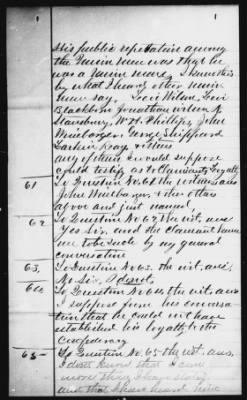 His public reputation among
the Union men was that he
was a Union man. I know this
by what I heard other union
men say. Levi Wilson, Levi
Blackborn, Jonathan Wilson
Stansbury, Wm H. Phillips, John
George Shippard
Larkin & others
any of whom I would suppose
could testify as to Claimants loyalty
61 To Question No. 61 the wit. ans.
John & the others
above and just named,
62 To Question No. 62 the wit. ans
Yes Sir, and the Claimant knew
me to be such by my general
conversation
63, To Question No. 63. the wit. ans.
No Sir, I did not,
64 To Question No. 64 the wit. ans
I suppose from his conversa
tion that he could not have
established his loyalty to the
Confederacy
65 To Question No. 65 the wit. ans.
I don't know that I can
more than I have said
and that I have heard him